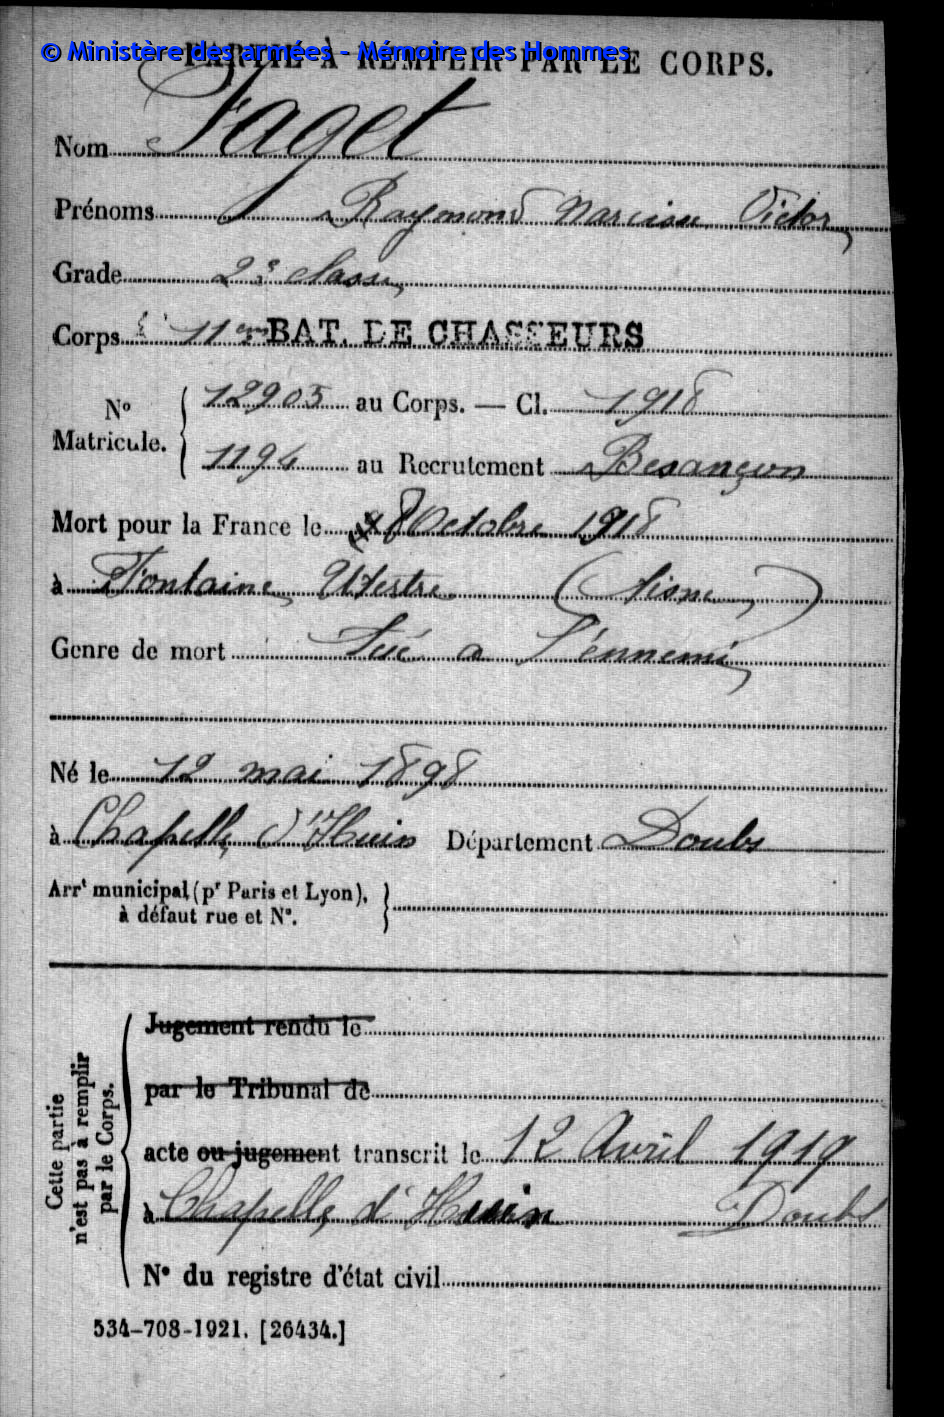 © Ministère des armées - Mémoire des Hommes
PARTIE À REMPLIR PAR LE CORPS.
Nom Faget
Prénoms Raymond Narcisse Victor
Grade 2e classe
Corps 11em BAT. DE CHASSEURS
No Matricule. 12905 au Corps. — Cl. 1918
1194 au Recrutement Besançon
Mort pour la France le 8 Octobre 1918
à Fontaine Utertre (Aisne)
Genre de mort Tué a l'ennemi
Né le 12 mai 1898
à Chapelle d'Huin Département Doubs
Arrt municipal (pr Paris et Lyon),
à défaut rue et N°.
Cette partie
n'est pas à remplir
par le Corps.
Jugement rendu le
par le Tribunal de
acte ou jugement transcrit le 12 Avril 1919
à Chapelle d'Huin Doubs
N° du registre d'état civil
534-708-1921. [26434.]